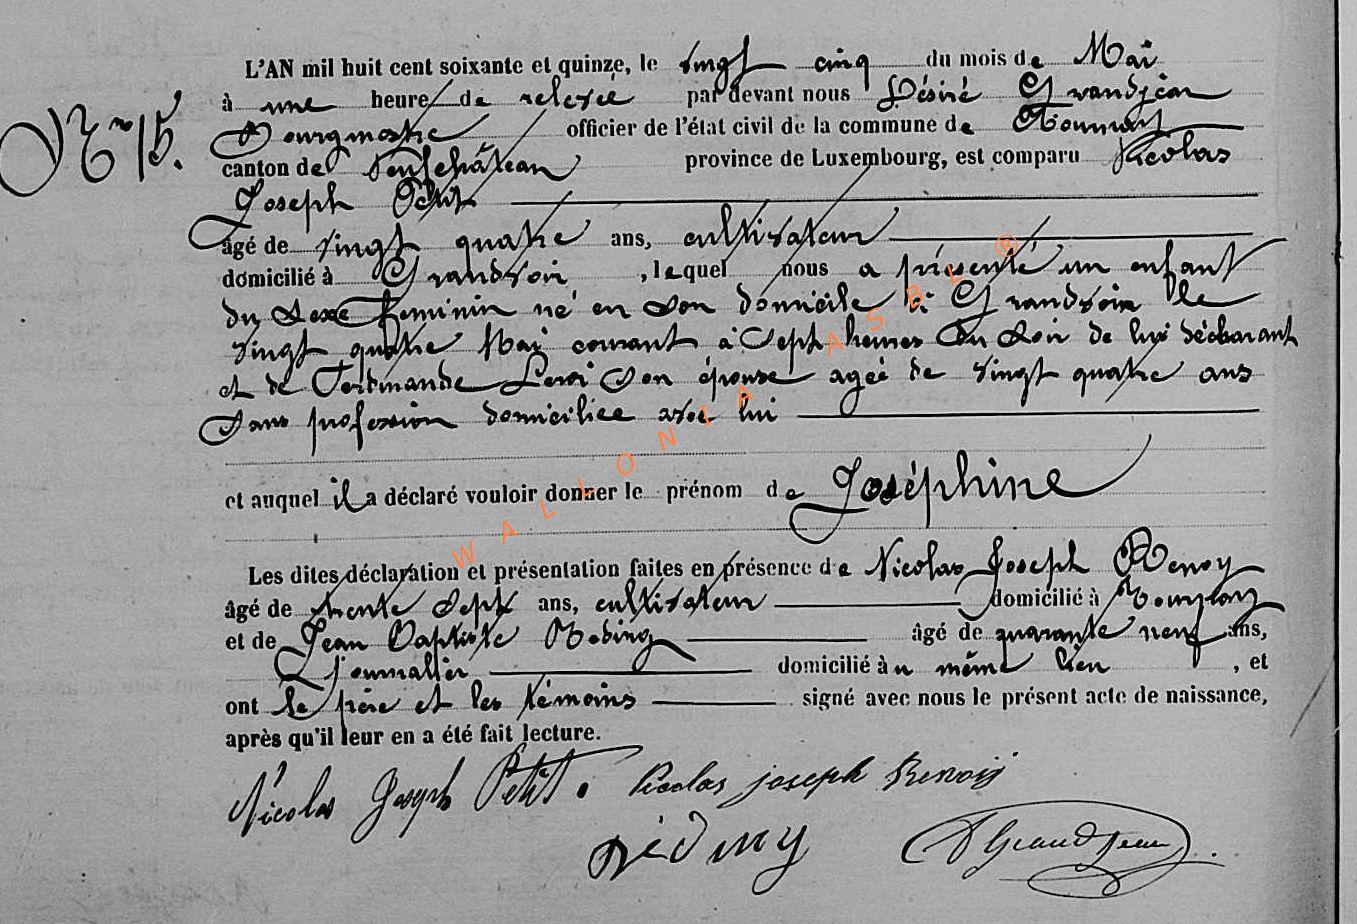 L'AN mil huit cent soixante et quinze, le vingt cinq du mois de Mai
N° 15.
à une heure de relevée par devant nous Désiré Grandjean
Bourgmestre officier de l'état civil de la commune de Tournay
canton de Neufchâteau province de Luxembourg, est comparu Nicolas
Joseph Petit
âgé de vingt quatre ans, cultivateur
domicilié à Grandvoir, lequel nous a présenté un enfant
du sexe féminin né en son domicile à Grandvoir le
vingt quatre Mai courant à Sept heures du soir de lui déclarant
et de Ferdinande Leroi Son épouse agée de vingt quatre ans
Sans profession domiciliée avec lui
et auquel il a déclaré vouloir donner le prénom de Joséphine
Les dites déclaration et présentation faites en présence de Nicolas Joseph Renoy
âgé de trente Sept ans, cultivateur domicilié à Tournay
et de Jean Baptiste âgé de quarante neuf ans,
Journalier domicilié à u même lieu, et
ont le père et les témoins signé avec nous le présent acte de naissance,
après qu'il leur en a été fait lecture.
Nicolas Joseph Petit. Nicolas joseph Renoij
D Grandjean
WALLONIA ASBL ®